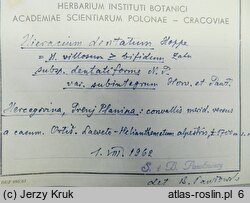 HERBARIUM INSTITUTI BOTANICI
ACADEMIAE SCIENTIARUM POLONAE - CRACOVIAE
Hieracium dentatum Hoppe
= H. villosum ≥ bifidum Zahn
subsp. dentatiforme N. P.
var. subintegrum
Hercegovina, Prenj Planina: convallis merid. versus
a cacum. Helianthemetum alpestris,
1. VIII. 1962
S. & B. Pawłowscy
det. B. Pawłowski
(c) Jerzy Kruk
atlas-roslin.pl 6